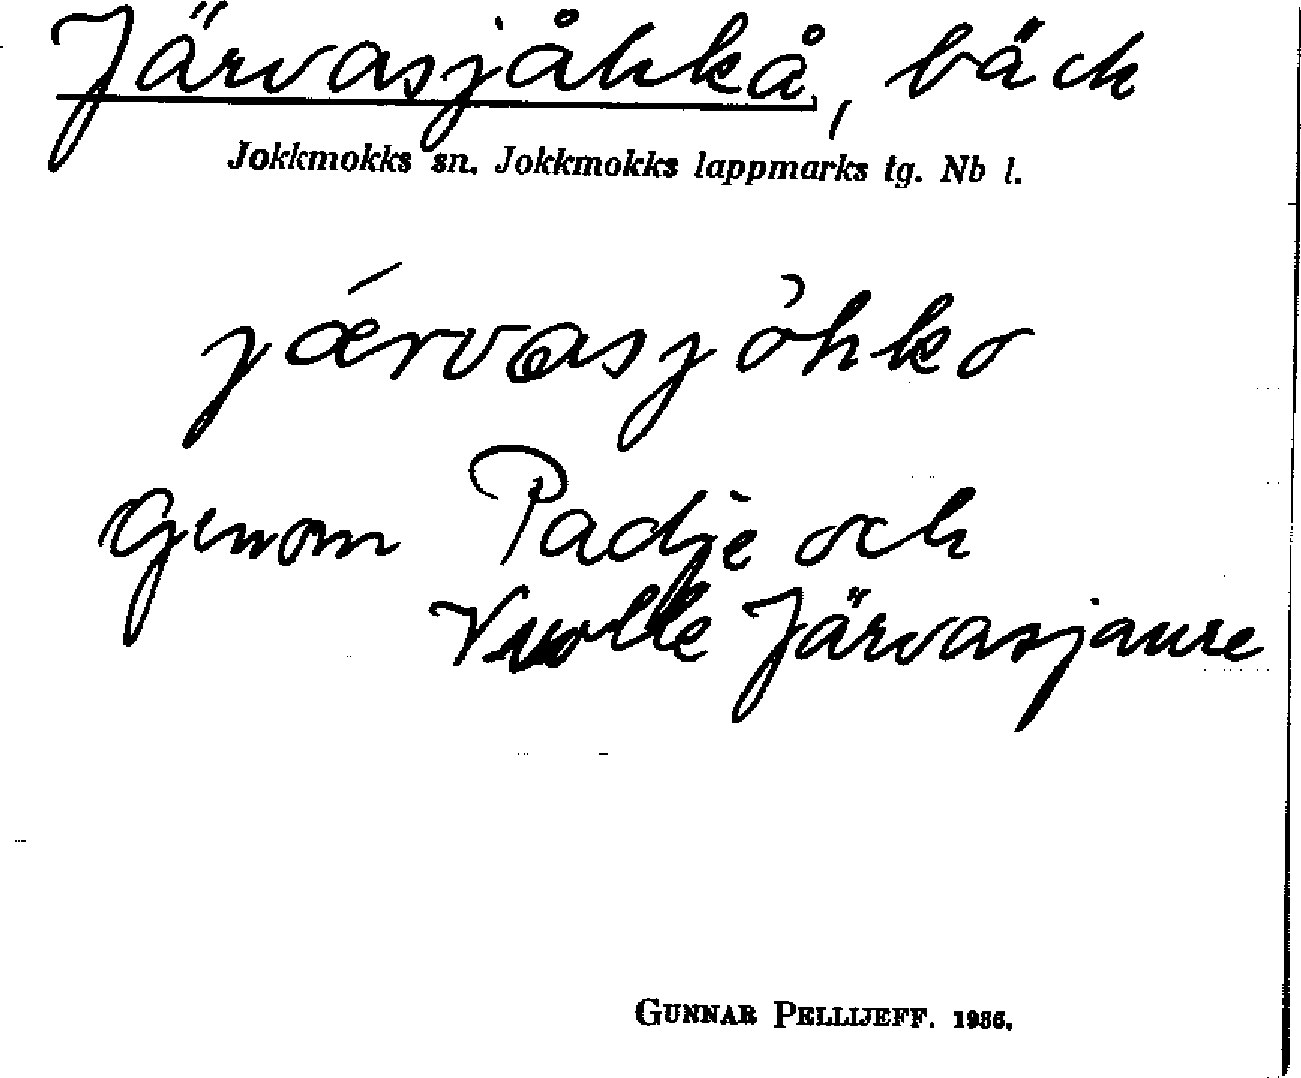 Järvasjåhkå, bäck
Jokkmokks sn. Jokkmokks lappmarks tg. Nb l.
jǽrvasjòhko
genom Padje och
Vuolle Järvasjaure
GUNNAR PELLIJEFF. 1986.